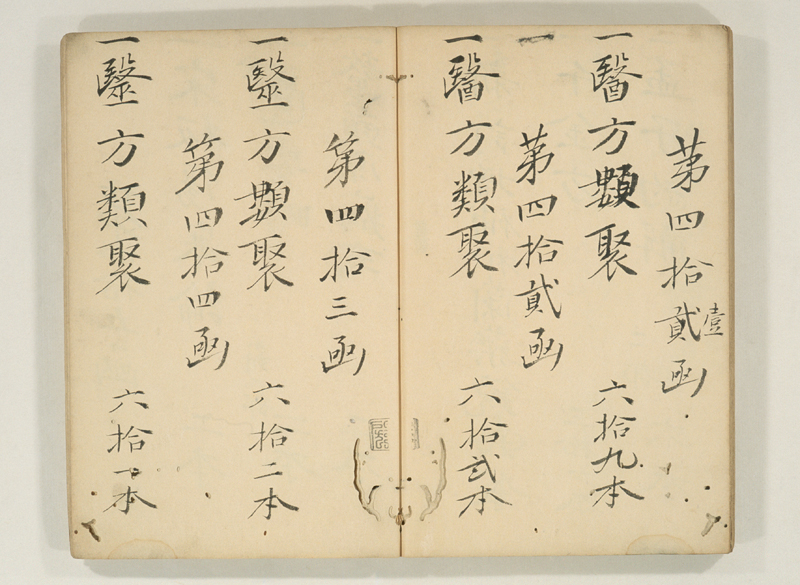 第四拾貳函
壹
一醫方類聚 六拾九本
一
第四拾貳函
一醫方類聚 六拾弐本
第四拾三函
一毉方類聚 六拾二本
第四拾四函
一毉方類聚 六拾一本